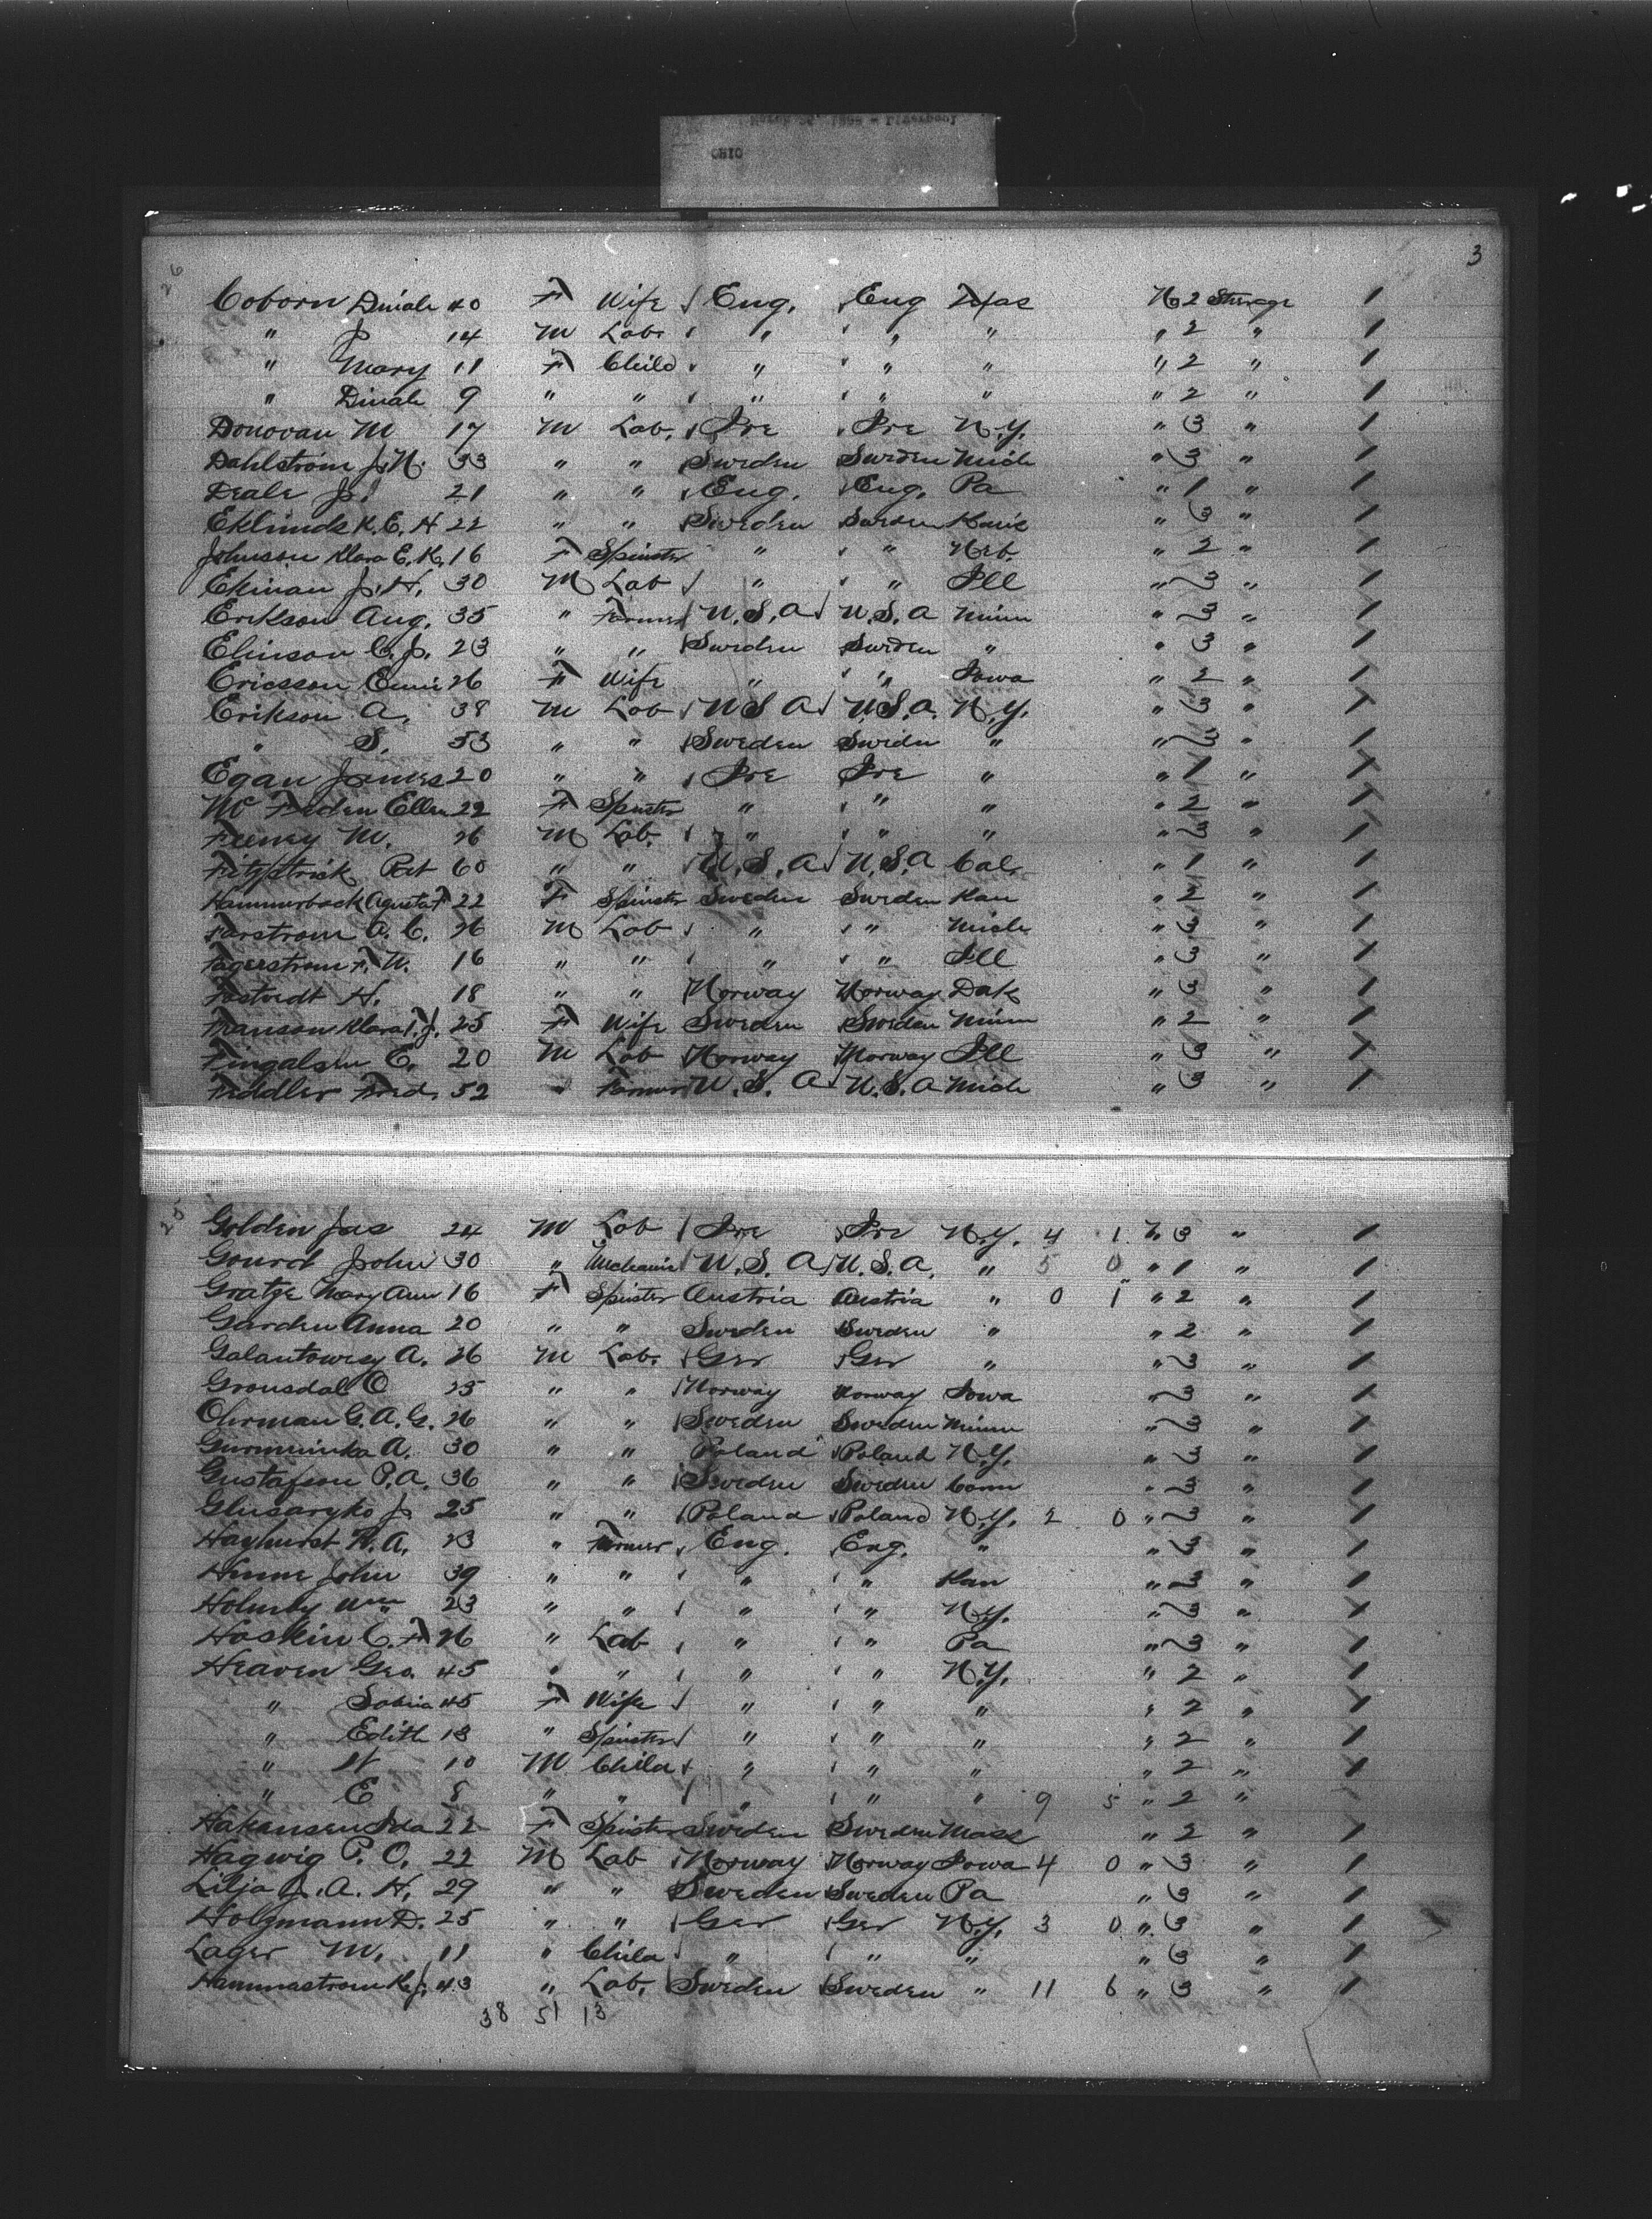 OHIO
3
26
Coborn Dinah 40 F Wife Eng. Eng Mas No 2 Steerage 1
" J 14 M Lab. " " " " 2 " 1
" Mary 11 F Child " " " " 2 " 1
" Dinah 9 " " " " " " 2 " 1
Donovan M 17 M Lab. Ire Ire N.Y. " 3 " 1
Dahlstrom J.N. 33 " " Sweden Sweden Mich " 3 " 1
Deale J. 21 " " Eng. Eng. Pa " 1 " 1
Eklunds K.E.H 22 " " Sweden Sweden " 3 " 1
Johnson Klara E.K. 16 F Spinster " " Neb. " 2 " 1
Ekman J.H. 30 M Lab " " Ill " 3 " 1
Erikson Aug. 35 " Farmer U.S.A U.S.A Minn " 3 " 1
Elinson C.J. 23 " " Sweden Sweden " " 3 " 1
Ericsson 26 F Wife " " Iowa " 2 " 1
Erikson A. 38 M Lab U S A U.S.A. N.Y. " 3 " 1
" S. 53 " " Sweden Sweden " " 3 " 1
Egan James 20 " " Ire Ire " " 1 " 1
Mc Faden Ellen 22 F Spinster " " " " 2 " 1
Feeney M. 26 M Lab. " " " " 3 " 1
Fitzpatrick Pat 60 " " U.S.A U.S.A Cal. " 1 " 1
Hammerback Agusta F 22 F Spinster Sweden Sweden Kan " 2 " 1
Farstrom A.C. 26 M Lab " " Mich " 3 " 1
Fagerstrom F.W. 16 " " " " Ill " 3 " 1
Fastvedt H. 18 " " Norway Norway Dak " 3 " 1
Franson Klara I.J. 25 F Wife Sweden Sweden Minn " 2 " 1
Fingalsen E. 20 M Lab Norway Norway Ill " 3 " 1
Feddler Fred. 52 " Farmer U.S. A U.S.A Mich " 3 " 1
25
Golden Jas 24 M Lab Ire Ire N.Y. 4 1 No 3 " 1
Gourd John 30 " Mechanic U.S. A U.S.A. " 5 0 " 1 " 1
Gratze Mary Ann 16 F Spinster Austria Austria " 0 1 " 2 " 1
Garden Anna 20 " " Sweden Sweden " " 2 " 1
Galantowesy A. 26 M Lab. Ger Ger " " 3 " 1
Gronsdal O 25 " " Norway Norway Iowa " 3 " 1
Ohrman G.A.G. 26 " " Sweden Sweden Minn " 3 " 1
Gurminka A. 30 " " Poland Poland N.Y. " 3 " 1
Gustafson P.A. 36 " " Sweden Sweden Conn " 3 " 1
Glusaryko J. 25 " " Poland Poland N.Y. 2 0 " 3 " 1
Hayhurst W.A. 23 " Farmer Eng. Eng. " " 3 " 1
Hinne John 39 " " " " Kan " 3 " 1
Holmby Wm 23 " " " " N.Y. " 3 " 1
Hoskin C.F 26 " Lab " " Pa " 3 " 1
Heaven Geo. 45 " " " " N.Y. " 2 " 1
" Sabina 45 F Wife " " " " 2 " 1
" Edith 13 " Spinster " " " " 2 " 1
" W 10 M Child " " " " 2 " 1
" E 8 " " " " " 9 5 " 2 "
Hakansen Ida 22 F Spinster Sweden Sweden Mass " 2 " 1
Hagwig P.O. 22 M Lab Norway Norway Iowa 4 0 " 3 " 1
Lilja J.A.H. 29 " " Sweden Sweden Pa " 3 " 1
Holzmann D. 25 " " Ger Ger N.Y. 3 0 " 3 " 1
Lager M. 11 " Child " " " " 3 " 1
Hammastrom K.J. 43 " Lab. Sweden Sweden " 11 6 " 3 " 1
38 51 13